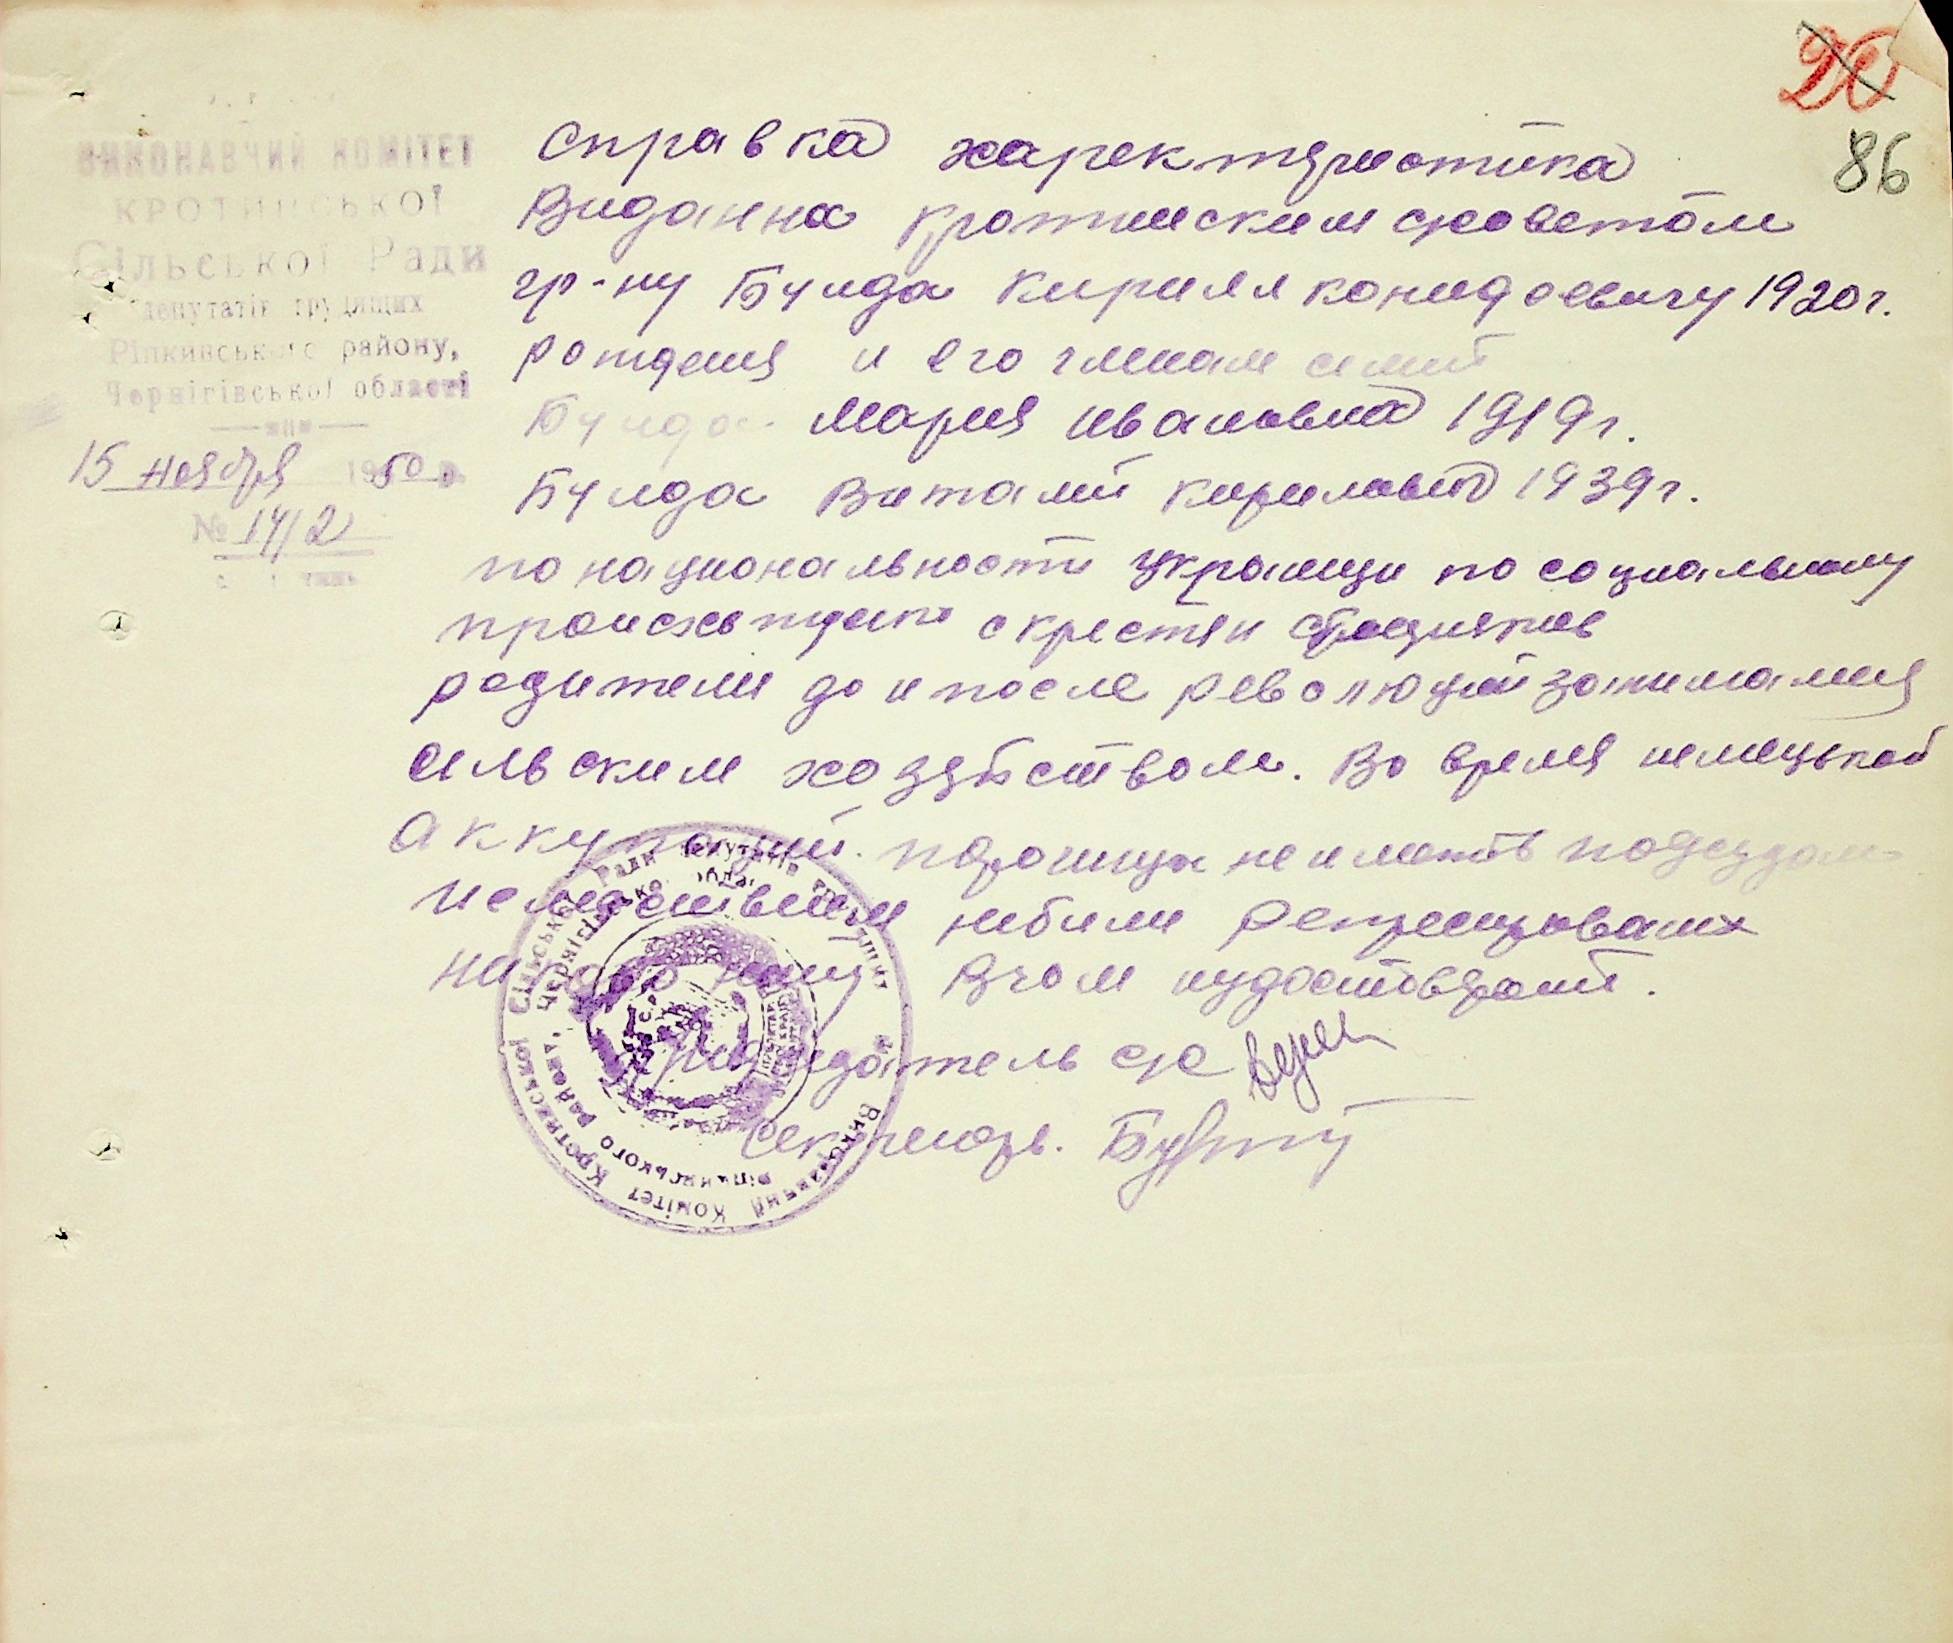 20
86
ВИКОНАВЧИЙ КОМІТЕТ
КРОТИНСЬКОЇ
Сільської Ради
депутатів трудящих
Ріпкинського району,
Чернігівської області
15 ноября 1950 р.
№ 14/2
справка харектеристика
Виданна Кротинским с/советом
гр-ну Булда Кирилл 1920 г.
рождения и его членам семй
Булда Мария Ивановна 1919 г.
Булда Виталий Кирилович 1939 г.
по национальности украинци по социальному
с крестян
родители до и после революций занимались
сильским хозяйством. Во время немецькой
Аккупаций не иметь под судом
небили
на
Председатель с/с
секретарь.
Виконавчий Комітет Кротинської Сільської Ради депутатів трудящих
Ріпкинського району, Чернігівської